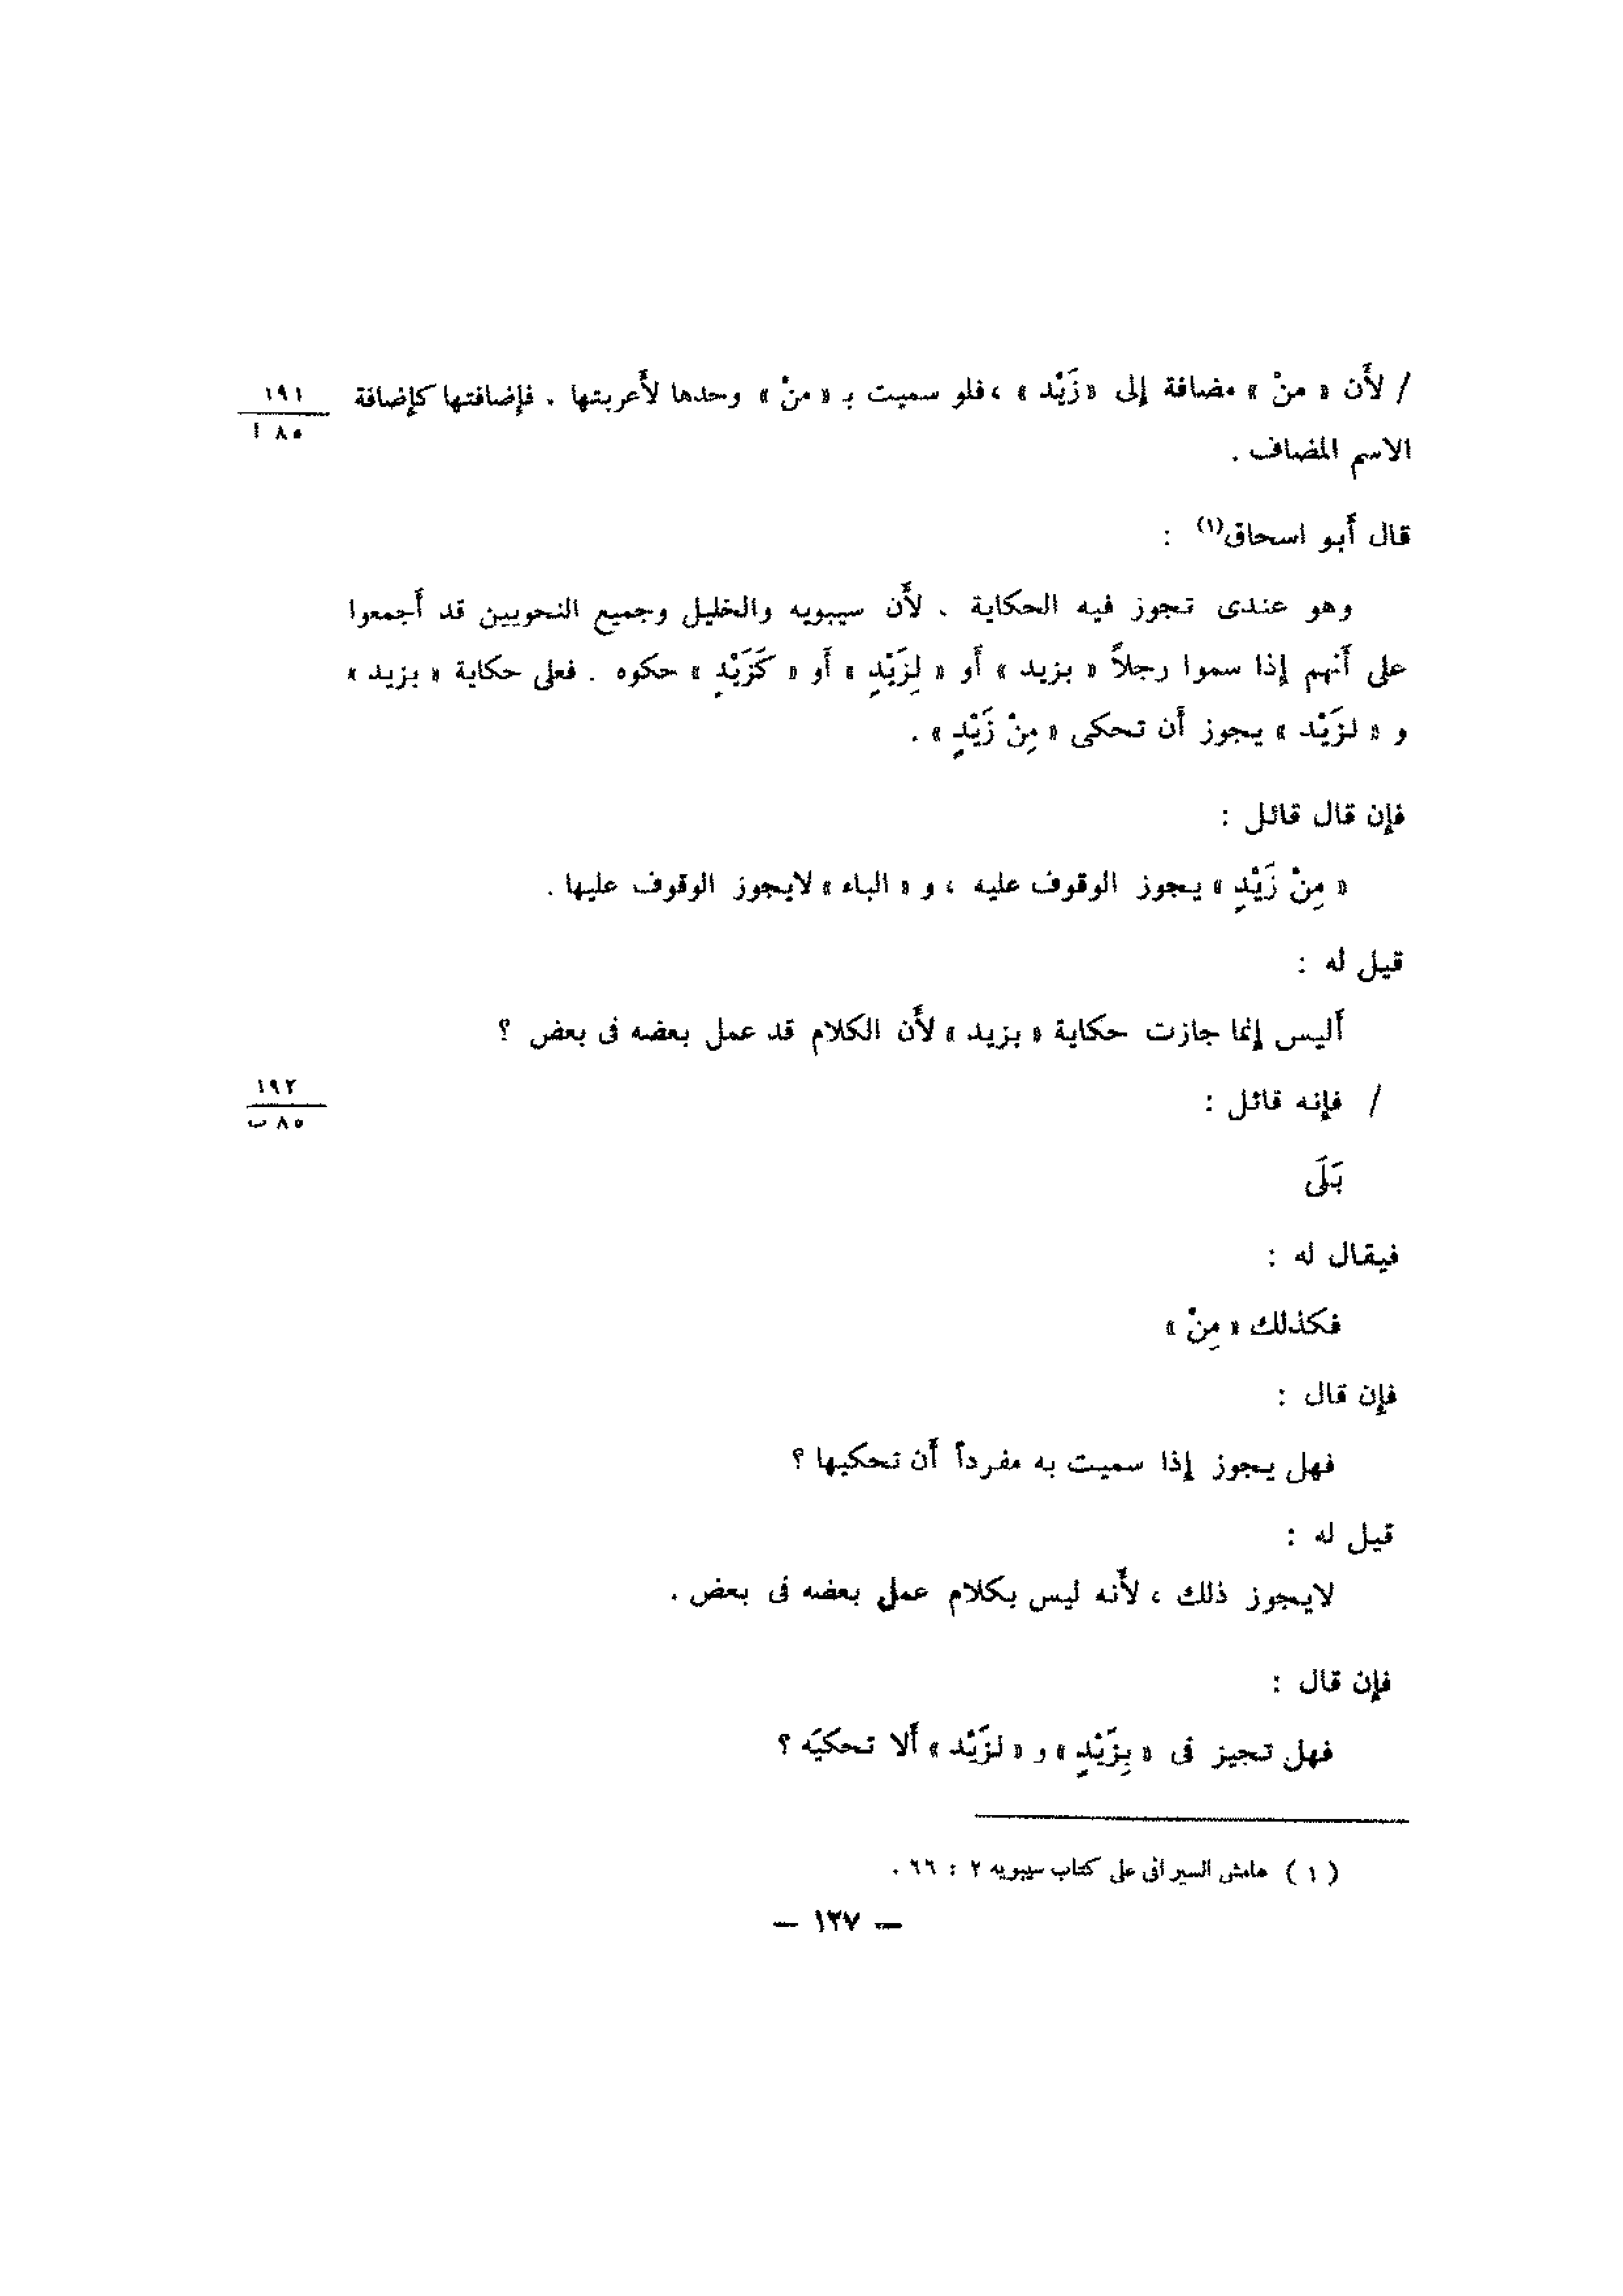 / لأَن « منْ » مضافة إلى « زَيْد » ، فلو سميت بـ « منْ » وحدها لأَعربتها . فإضافتها كإضافة
١٩١
٨٥ أ
الاسم المضاف .
قال أَبو اسحاق(١) :
وهو عندى تجوز فيه الحكاية . لأَن سيبويه والخليل وجميع النحويين قد أَجمعوا
على أَنهم إذا سموا رجلاً « بزيد » أَو « لِزَيْدٍ » أَو « كَزَيْدٍ » حكوه . فعلى حكاية « بزيد »
و « لزَيْد » يجوز أَن تحكى « مِنْ زَيْدٍ » .
فإن قال قائل :
« مِنْ زَيْدٍ » يجوز الوقوف عليه ، و « الباء » لايجوز الوقوف عليها .
قيل له :
أَليس إنما جازت حكاية « بزيد » لأَن الكلام قد عمل بعضه فى بعض ؟
/ فإنه قائل :
١٩٢
٨٥ ب
بَلَى
فيقال له :
فكذلك « مِنْ »
فإن قال :
فهل يجوز إذا سميت به مفرداً أَن تحكيها ؟
قيل له :
لايجوز ذلك ، لأَنه ليس بكلام عمل بعضه فى بعض .
فإن قال :
فهل تجيز فى « بِزَيْدٍ » و « لزَيْد » أَلا تحكيَه ؟
( ١ ) هامش السيرافى على كتاب سيبويه ٢ : ٦٦ .
— ١٢٧ —